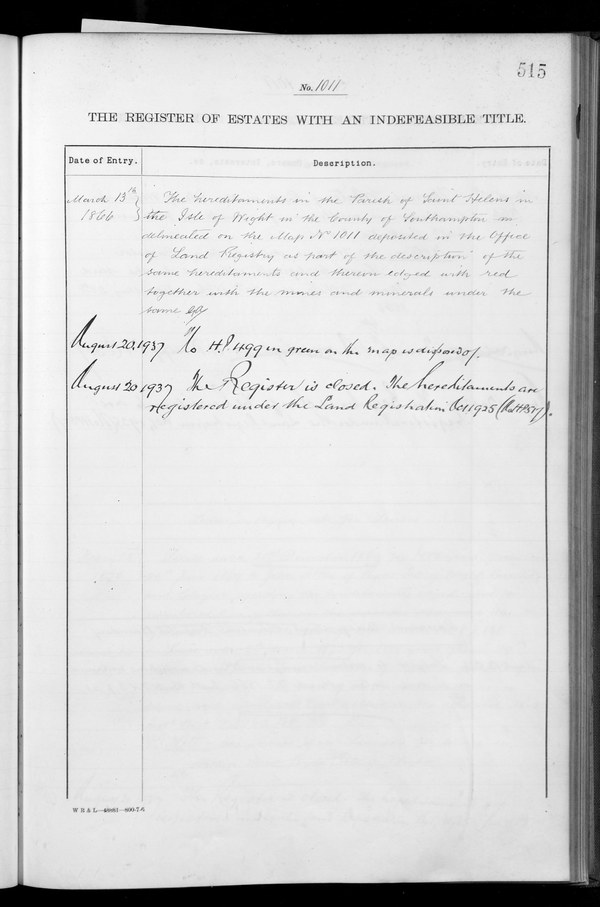 515
No. 1011
THE REGISTER OF ESTATES WITH AN INDEFEASIBLE TITLE.
Date of Entry. Description.
March 13th 1866 The hereditaments in the Parish of Saint Helens in
the Isle of Wight in the County of Southampton as
delineated on the Map No 1011 deposited in the Office
of Land Registry as part of the description of the
same hereditaments and thereon edged with red
together with the mines and minerals under the
same
August 20, 1937 H.P 1499 in green on the map is disposed of.
August 20 1937 The Register is closed. The hereditaments are
registered under the Land Registration Act 1925
W B & L